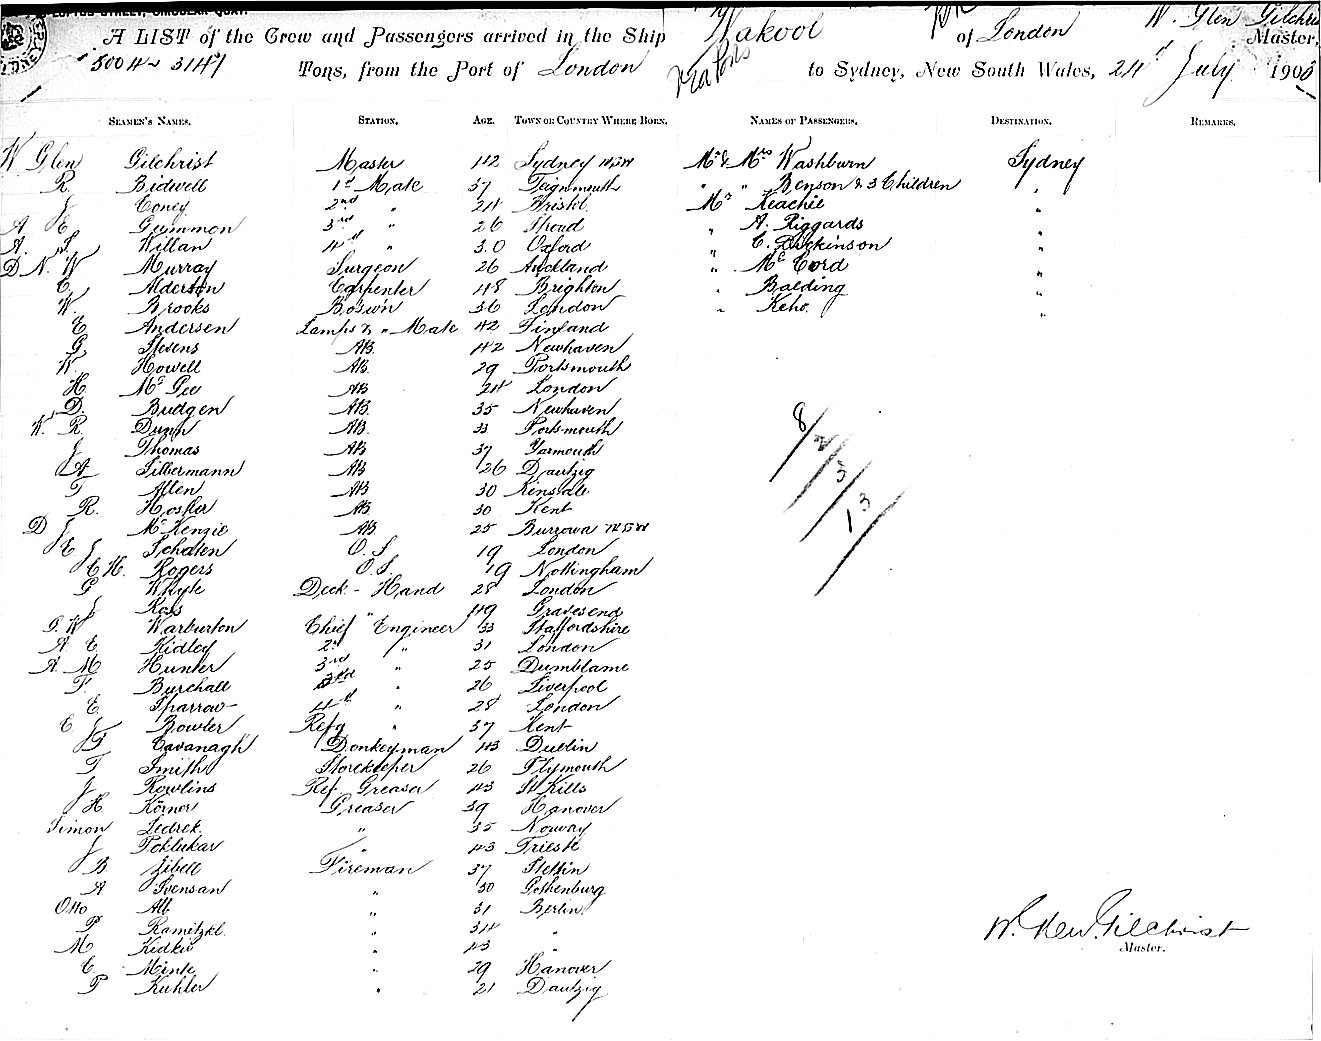 LOFTUS STREET, CIRCULAR QUAY.
A LIST of the Crew and Passengers arrived in the Ship Wakool of London W. Glen Gilchrist Master,
5004 3141 Tons, from the Port of London to Sydney, New South Wales, 24th July 1903
SEAMEN'S NAMES. STATION. AGE. TOWN OR COUNTRY WHERE BORN. NAMES OF PASSENGERS. DESTINATION. REMARKS.
W Glen Gilchrist Master 42 Sydney NSW Mr & Mrs Washburn Sydney
R. Bidwell 1st Mate 37 Teignmouth " " Benson & 3 Children "
J Coney 2nd " 24 Bristol Mr Keachie "
A E Gammon 3rd " 26 Stroud " A. Piggards "
A. S. Willan 4th " 30 Oxford " C. Dickinson "
D N. W Murray Surgeon 26 Auckland " McCord "
C. Alderton Carpenter 48 Brighton " Balding "
W. Brooks Bos'w'n 36 London " Keho. "
E Andersen Lamps & " Mate 42 Finland
G Stevens AB. 42 Newhaven
W. Howell AB. 29 Portsmouth
H McGee AB 24 London
D. Budgen AB. 35 Newhaven
W. R. Dunn AB. 33 Portsmouth
J Thomas AB 37 Yarmouth
A Silbermann AB 26 Dantzig
T Allen AB 30 Kinsale
R. Hosker AB 30 Kent
D J McKenzie AB. 25 Burrowa NSW
E J Scholen O. S 19 London
C H. Rogers O.S. 19 Nottingham
G Whyte Deck - Hand 28 London
J Ross " 49 Gravesend
G. W Warburton Chief Engineer 33 Staffordshire
A E Ridley 2nd " 31 London
A. M Hunter 3rd " 25 Dumblame
F. Burchall 3rd " 26 Liverpool
E Sparrow 4th " 28 London
C J Bowler Refg " 37 Kent
G Cavanagh Donkeyman 43 Dublin
T Smith Storekeeper 26 Plymouth
J Rowlins Ref. Greaser 43 St Kills
H Körner Greaser 39 Hanover
Simon Ledrek. " 35 Norway
J Poklukar " 43 Trieste
B Zibell Fireman 37 Stettin
A Svensan " 30 Gothenburg
Otto Alb. " 31 Berlin
P Ramitzkl. " 34 "
M Kidkir " 43 "
C. Minte " 29 Hanover
P Kuhler " 21 Dantzig
8/
3/
13
W. Glen Gilchrist
Master.